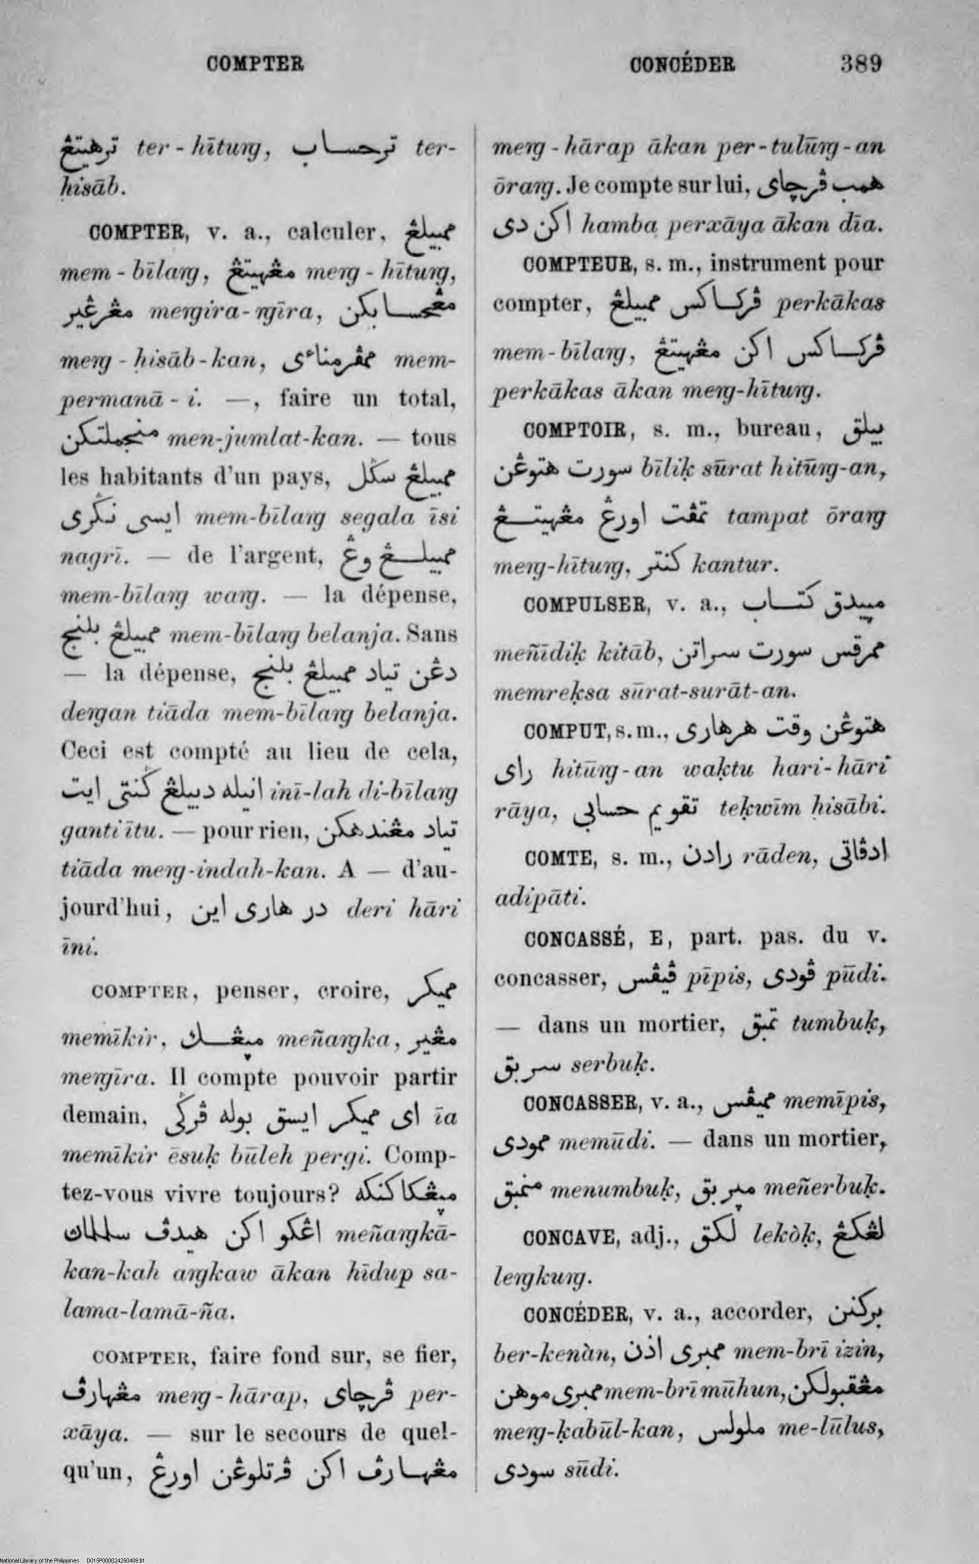 COMPTER
CONCÉDER 389
ترهيتڠ ter-hītuŋ, ترحساب ter-
ḥisāb.
COMPTER, v. a., calculer, ممبيلڠ
mem-bīlaŋ, مڠهيتڠ meŋ-hītuŋ,
مڠرڠير meŋira-ŋīra, مڠحسابكن
meŋ-ḥisāb-kan, ممڤرمناءى mem-
permanā-i. —, faire un total,
منجملتكن men-jumlat-kan. — tous
les habitants d'un pays, ممبيلڠ سڬل
ايسى نڬرى mem-bīlaŋ segala īsi
nagrī. — de l'argent, ممبيلڠ وڠ
mem-bīlaŋ waŋ. — la dépense,
ممبيلڠ بلنج mem-bīlaŋ belanja. Sans
— la dépense, دڠن تياد ممبيلڠ بلنج
deŋan tiāda mem-bīlaŋ belanja.
Ceci est compté au lieu de cela,
انيله دبيلڠ ڬنتى ايت inī-lah di-bīlaŋ
ganti ītu. — pour rien, تياد مڠندهكن
tiāda meŋ-indah-kan. A — d'au-
jourd'hui, در هارى اين deri hāri
īni.
COMPTER, penser, croire, مميكر
memīkir, مڽڠك meñaŋka, مڠير
meŋīra. Il compte pouvoir partir
demain, اى مميكر ايسق بوله ڤرڬى īa
memīkir ēsuḳ būleh pergi. Comp-
tez-vous vivre toujours? مڽڠكاكنكه
اڠكو اكن هيدڤ سلماڽ meñaŋkā-
kan-kah aŋkaw ākan hīdup sa-
lama-lamā-ña.
COMPTER, faire fond sur, se fier,
مڠهارڤ meŋ-hārap, ڤرچاى per-
xāya. — sur le secours de quel-
qu'un, مڠهارڤ اكن ڤرتلوڠن اورڠ
meŋ-hārap ākan per-tulūŋ-an
ōraŋ. Je compte sur lui, همب ڤرچاى
اكن دى hamba perxāya ākan dīa.
COMPTEUR, s. m., instrument pour
compter, ڤركاكس ممبيلڠ perkākas
mem-bīlaŋ, ڤركاكس اكن مڠهيتڠ
perkākas ākan meŋ-hītuŋ.
COMPTOIR, s. m., bureau, بيلق
سورت هتوڠن bīliḳ sūrat hitūŋ-an,
تمڤت اورڠ مڠهيتڠ tampat ōraŋ
meŋ-hītuŋ, كنتر kantur.
COMPULSER, v. a., مڽيدق كتاب
meñīdiḳ kitāb, ممرقس سورت سراتن
memreḳsa sūrat-surāt-an.
COMPUT, s. m., هتوڠن وقت هرهارى
راى hitūŋ-an waḳtu hari-hāri
rāya, تقويم حسابي teḳwīm ḥisābi.
COMTE, s. m., رادن rāden, ادڤاتى
adipāti.
CONCASSÉ, E, part. pas. du v.
concasser, ڤيڤس pīpis, ڤودى pūdi.
— dans un mortier, تمبق tumbuḳ,
سربق serbuḳ.
CONCASSER, v. a., مميڤس memīpis,
ممودى memūdi. — dans un mortier,
منمبق menumbuḳ, مڽربق meñerbuḳ.
CONCAVE, adj., لكق lekòḳ, لڠكڠ
leŋkuŋ.
CONCÉDER, v. a., accorder, بركنن
ber-kenàn, ممبرى اذن mem-brī izin,
ممبرى موهن mem-brī mūhun, مڠقبولكن
meŋ-ḳabūl-kan, ملولس me-lūlus,
سودى sūdi.
National Library of the Philippines